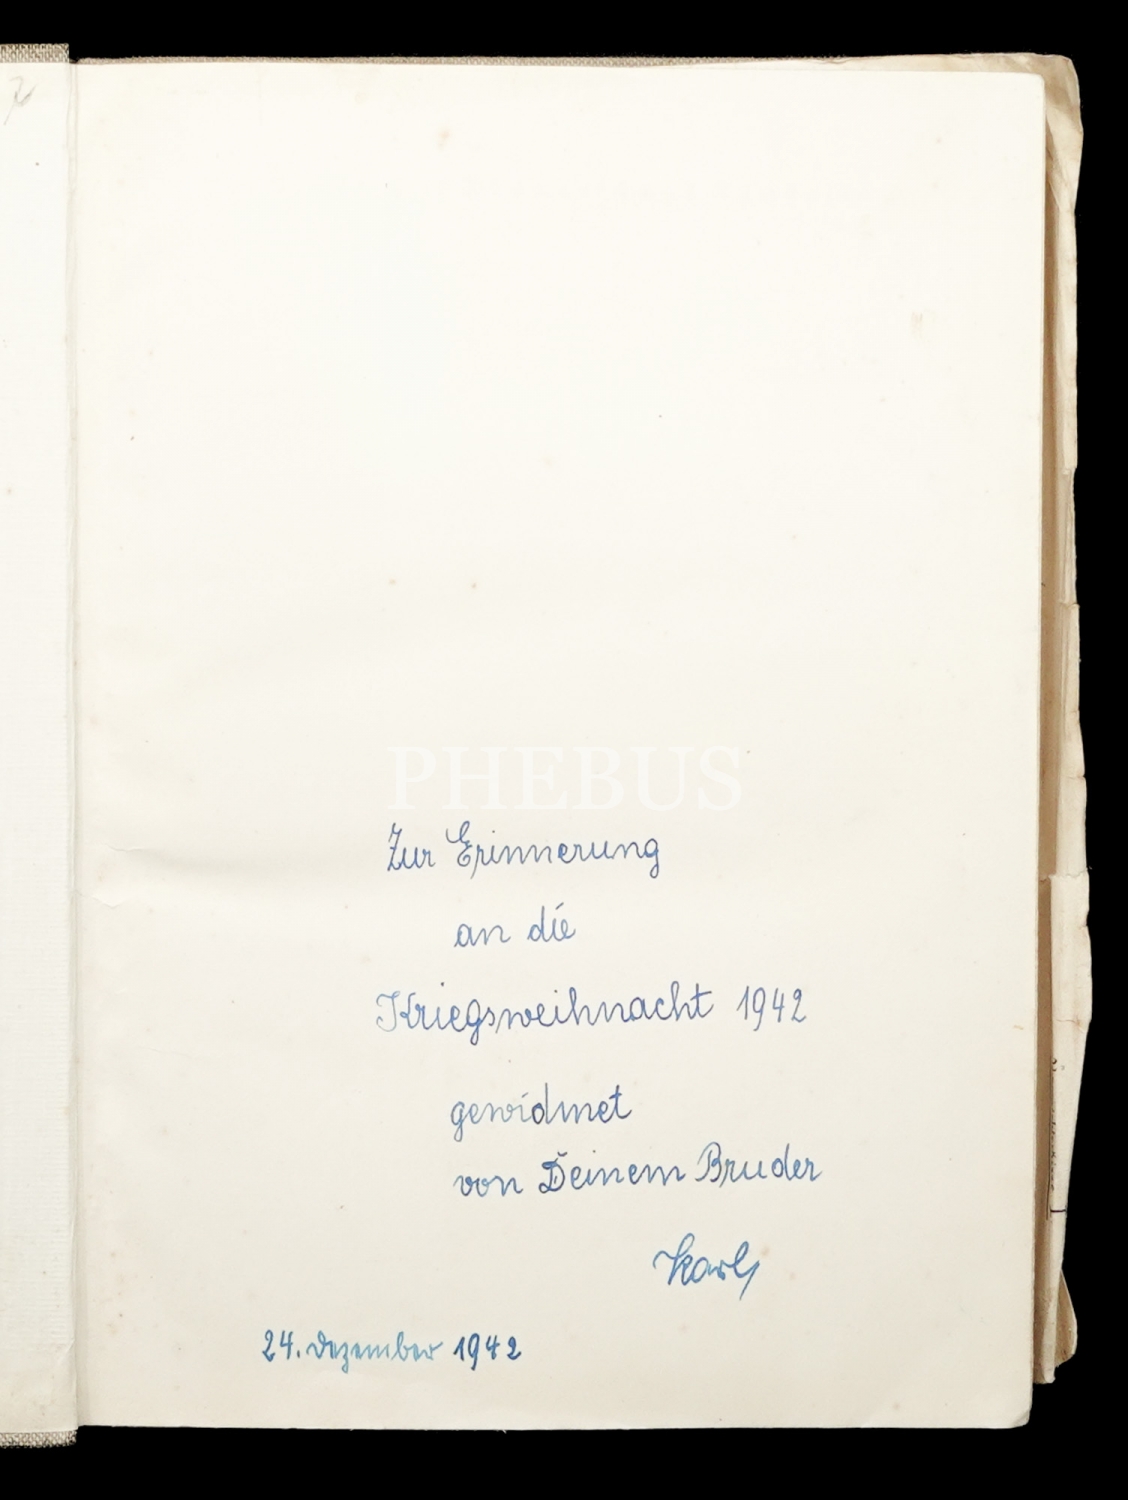 PHEBUS
Zur Erinnerung
an die
Kriegsweihnacht 1942
gewidmet
von Deinem Bruder
Karl
24. Dezember 1942